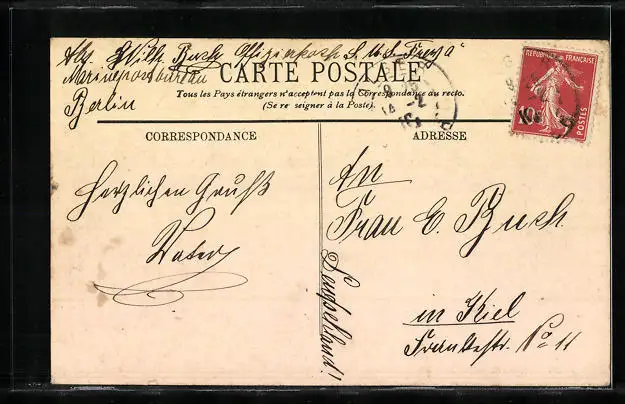 Abs. Wilh. Buch, Offizierkoch S. M. S. "Freya"
Marinepostbureau
Berlin
CARTE POSTALE
Tous les Pays étrangers n'acceptent pas la Correspondance au recto.
(Se renseigner à la Poste).
CORRESPONDANCE
ADRESSE
Herzlichen Gruß
Vater
An
Frau E. Buch.
in Kiel
No 11
Deutschland!
REPUBLIQUE FRANÇAISE
10c
POSTES